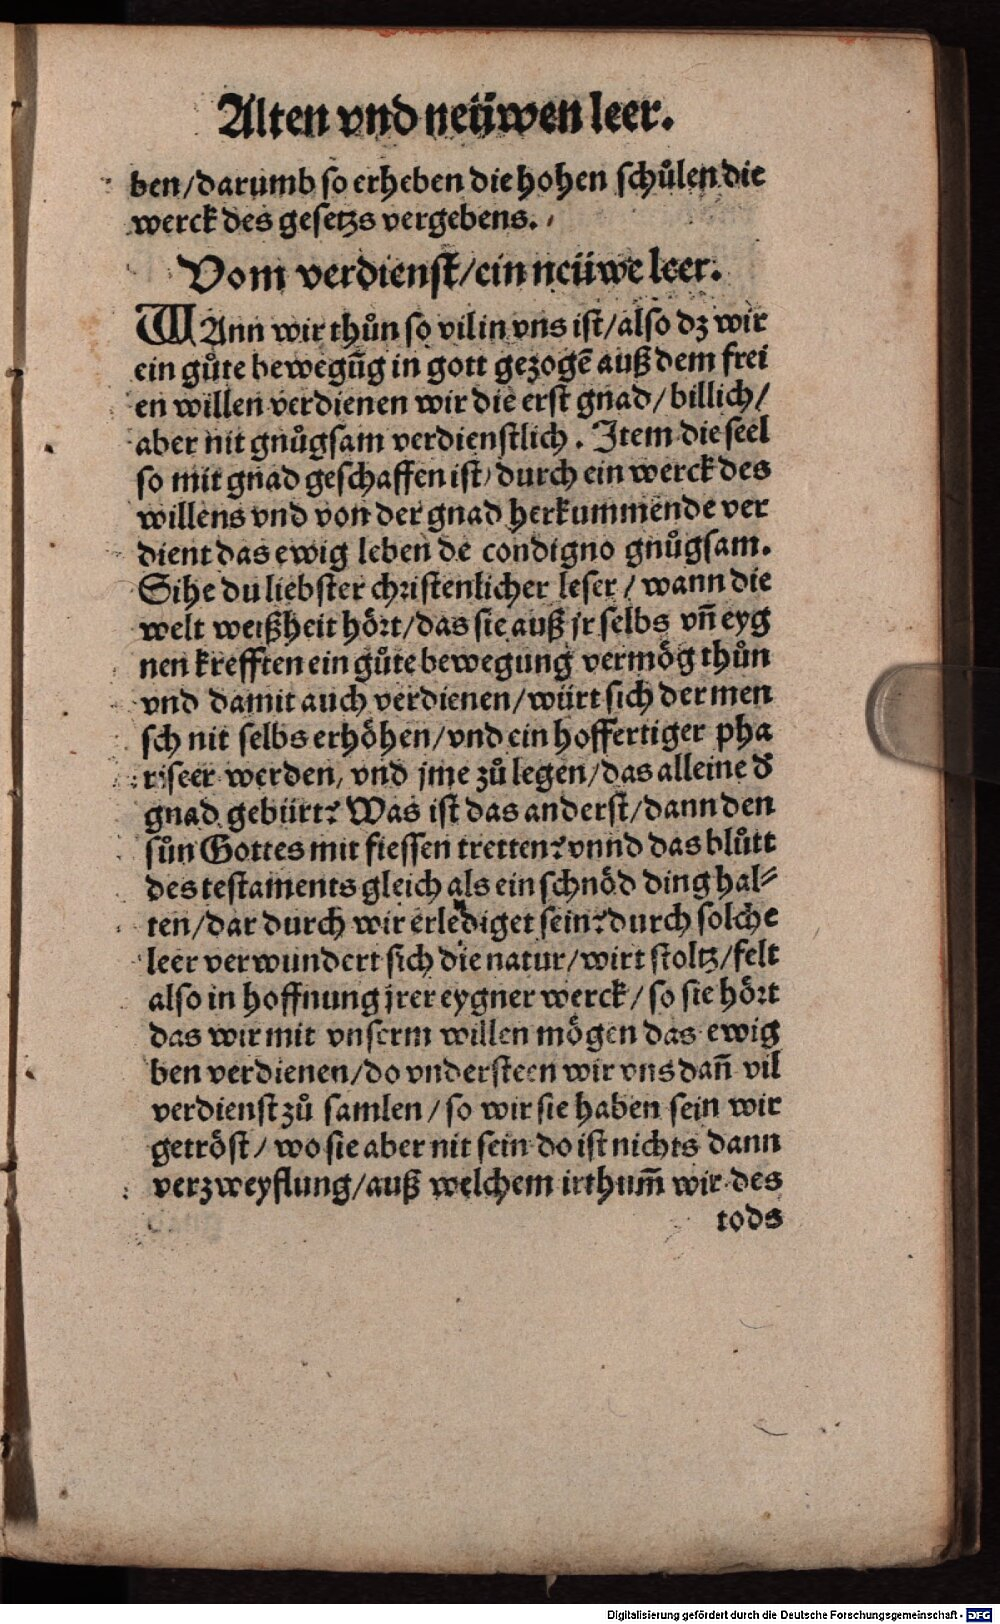 Alten vnd neüwen leer.
ben/darumb so erheben die hohen schůlen die
werck des gesetzs vergebens.
Vom verdienst/ein neüwe leer.
WAnn wir thůn so vil in vns ist/also dz wir
ein gůte bewegūg in gott gezogē auß dem frei
en willen verdienen wir die erst gnad/billich/
aber nit gnůgsam verdienstlich. Item die seel
so mit gnad geschaffen ist/durch ein werck des
willens vnd von der gnad herkummende ver
dient das ewig leben de condigno gnůgsam.
Sihe du liebster christenlicher leser/wann die
welt weißheit hört/das sie auß jr selbs vn̄ eyg
nen krefften ein gůte bewegung vermög thůn
vnd damit auch verdienen/würt sich der men
sch nit selbs erhöhen/vnd ein hoffertiger pha
riseer werden, vnd jme zů legen/das alleine d̓
gnad gebürt? Was ist das anderst/dann den
sůn Gottes mit fiessen tretten? vnnd das blůtt
des testaments gleich als ein schnöd ding hal⸗
ten/dar durch wir erlediget sein? durch solche
leer verwundert sich die natur/wirt stoltz/felt
also in hoffnung jrer eygner werck/so sie hört
das wir mit vnserm willen mögen das ewig
ben verdienen/do vndersteen wir vns dan̄ vil
verdienst zů samlen/so wir sie haben sein wir
getröst/wo sie aber nit sein do ist nichts dann
verzweyflung/auß welchem irthum̄ wir des
tods
Digitalisierung gefördert durch die Deutsche Forschungsgemeinschaft - DFG